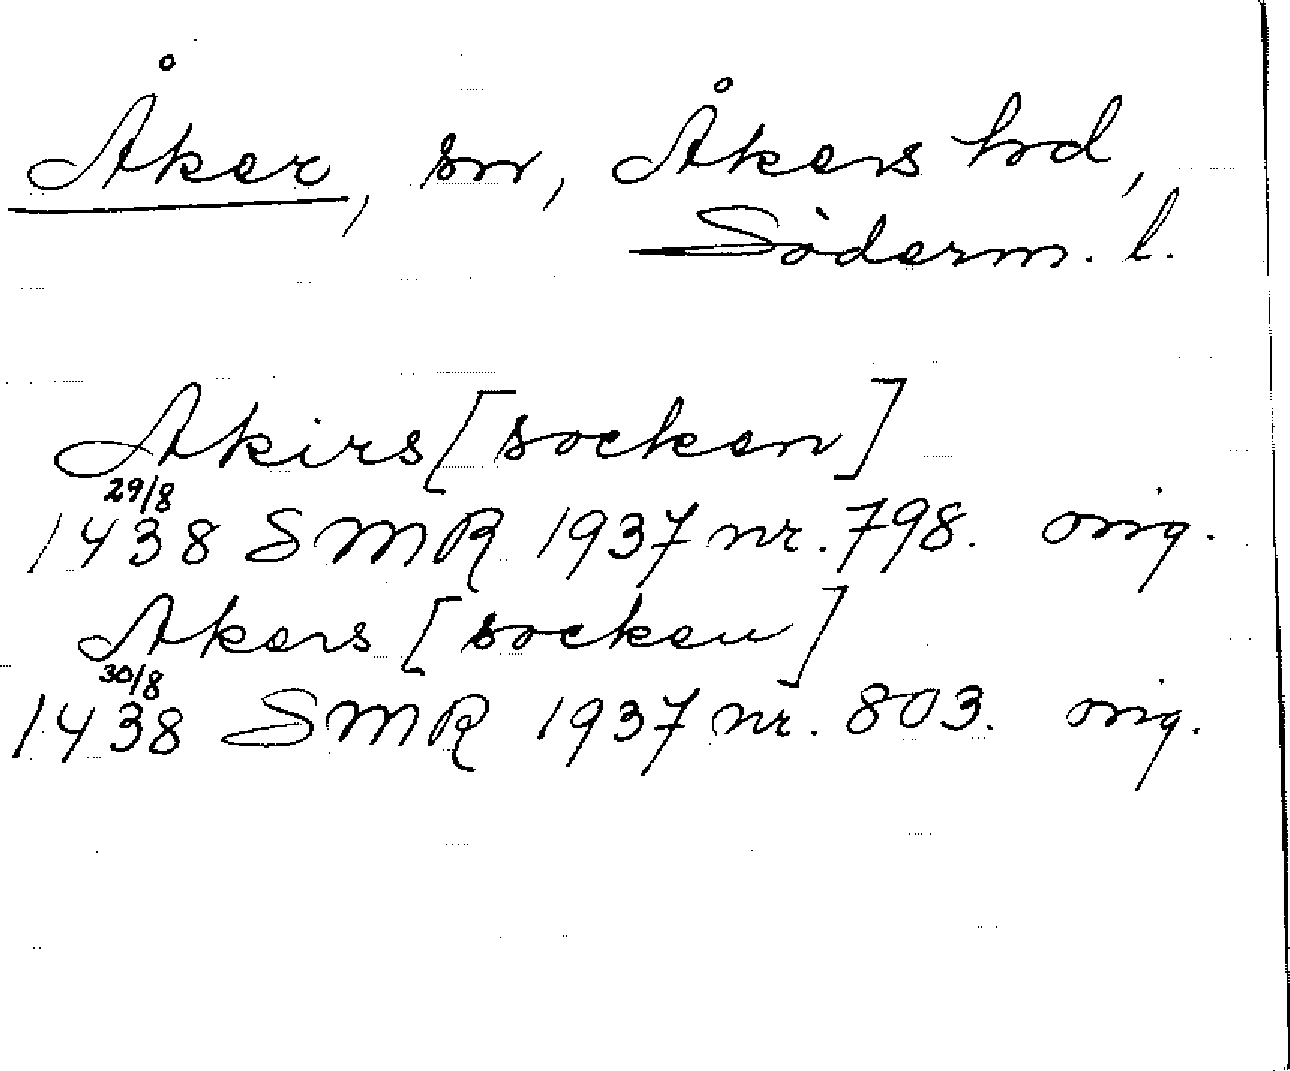 Åker, sn, Åkers hd,
Söderm. l.
Akirs [socken]
29/8
1438 SMR 1937 nr. 798. orig.
Akers [socken]
30/8
1438 SMR 1937 nr. 803. orig.